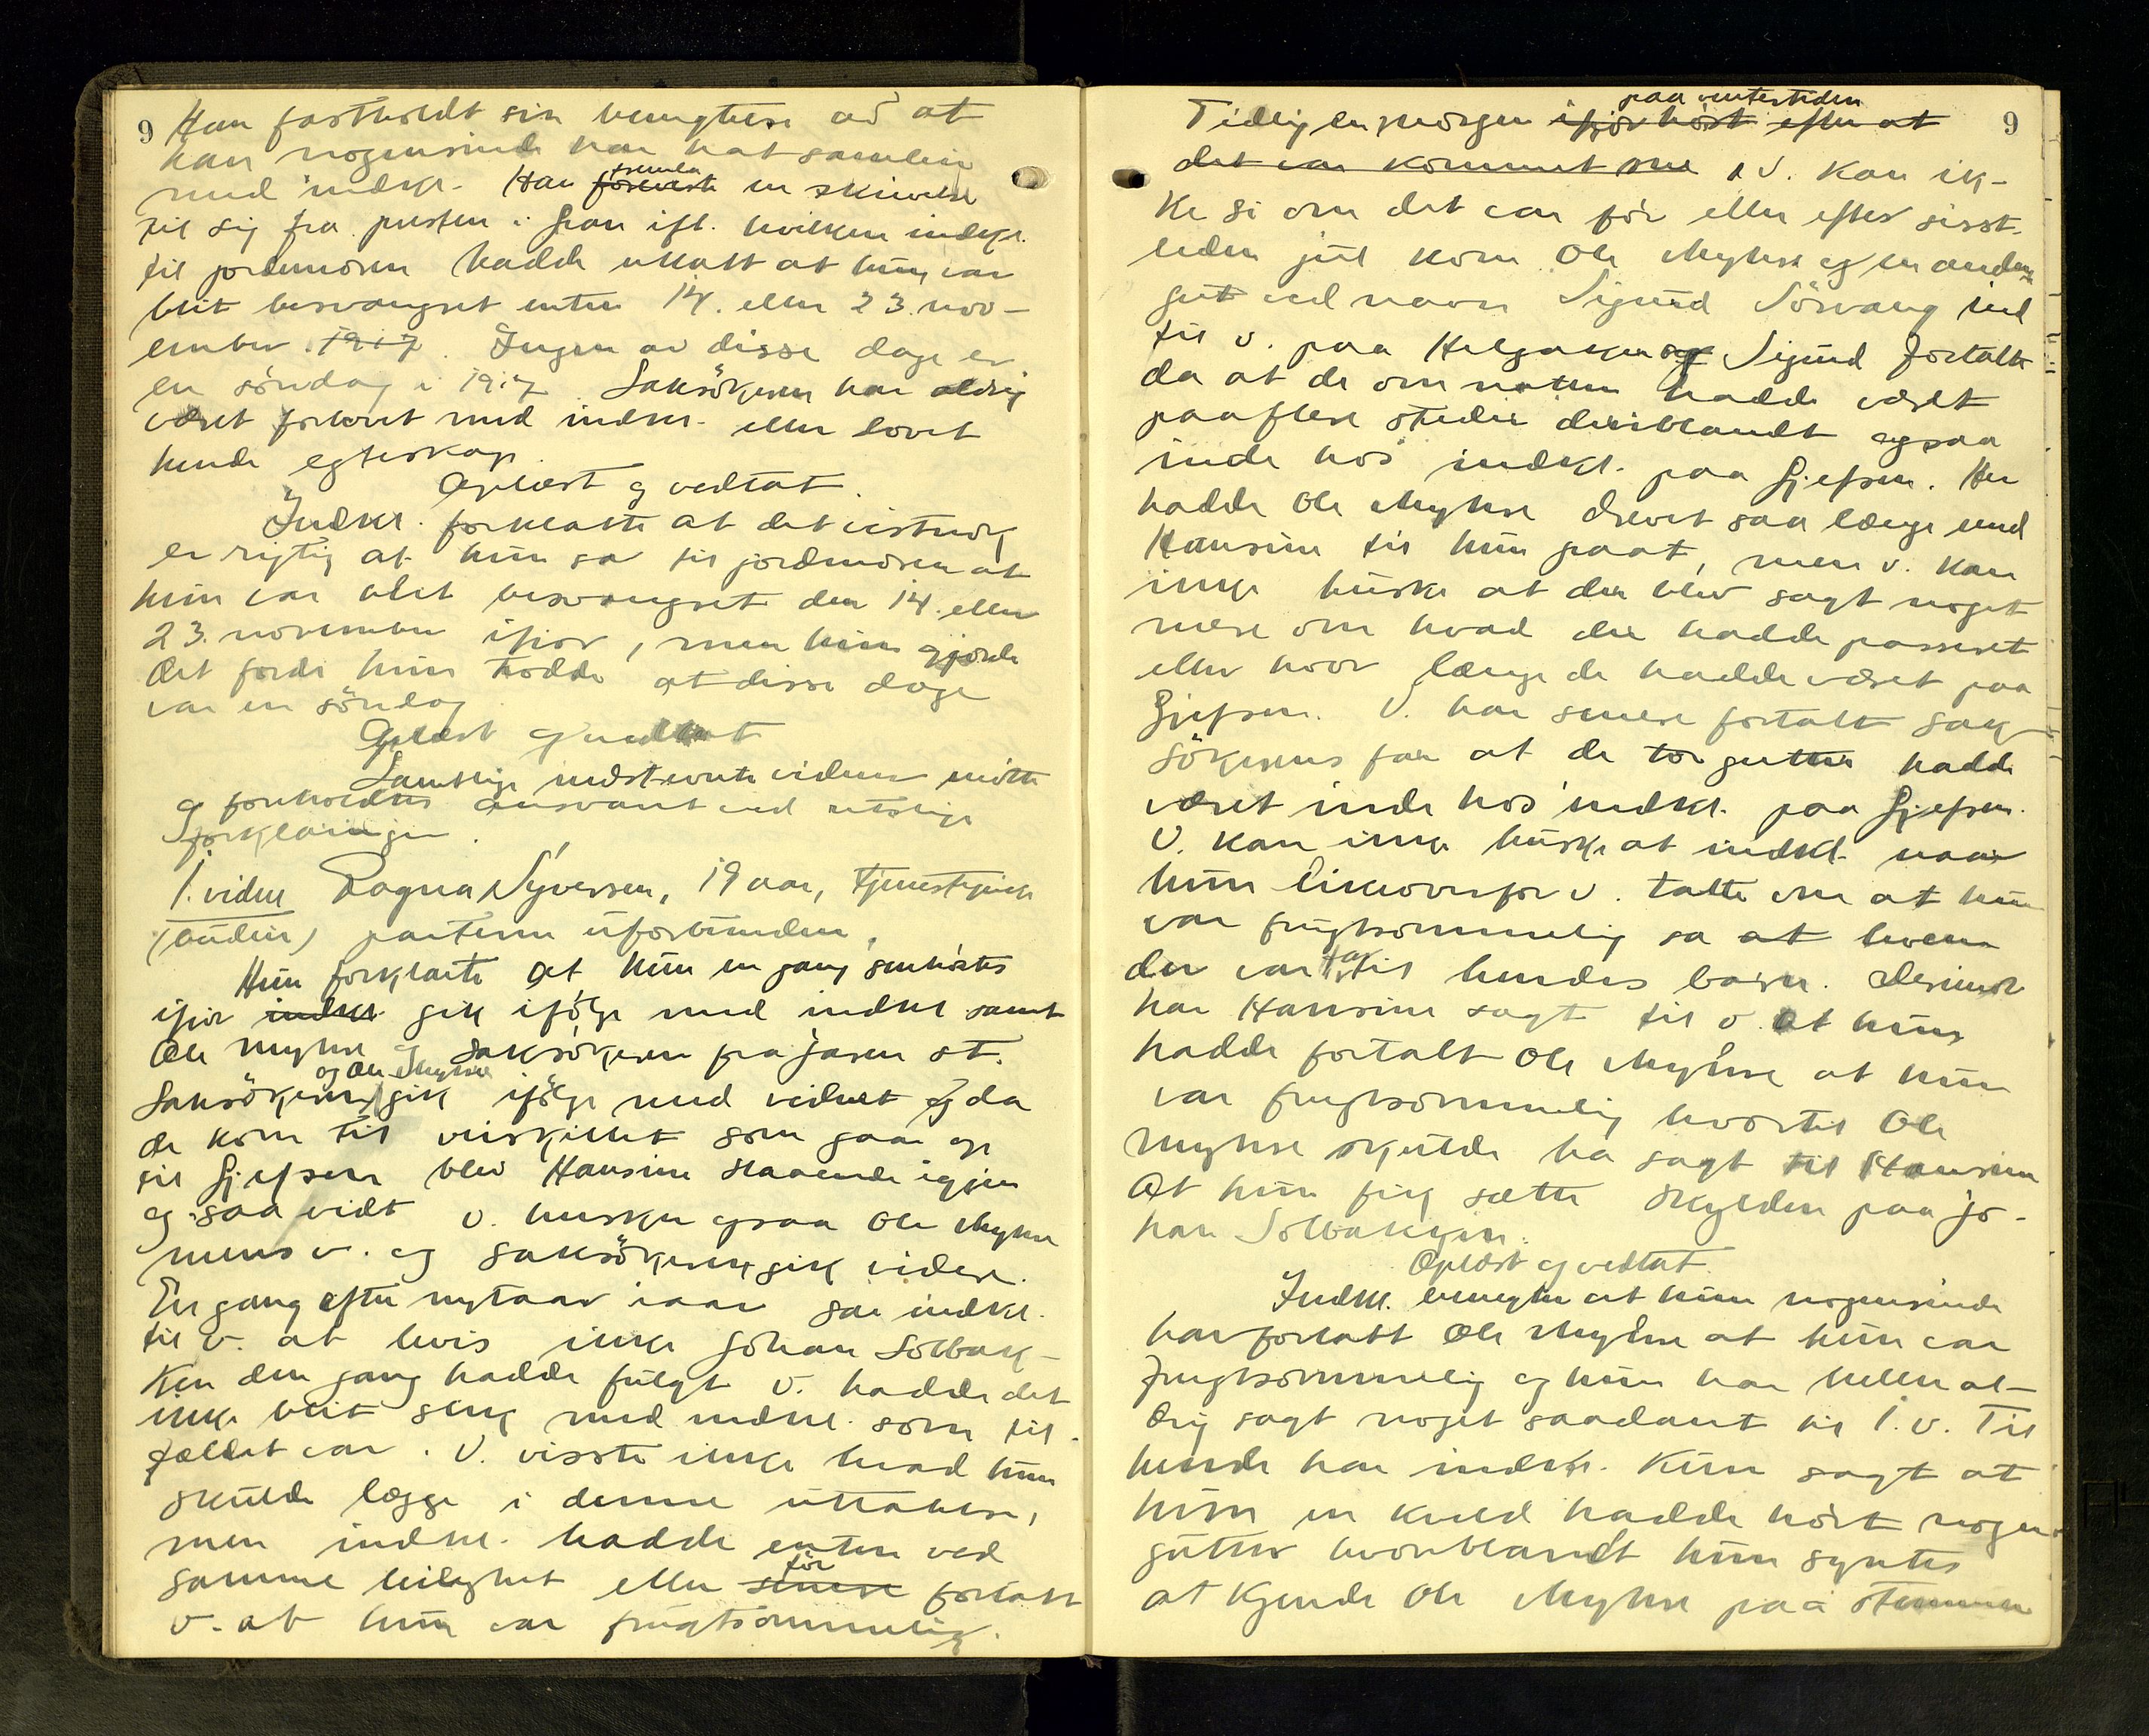 9 Han fastholdt sin benegtelse av at
han nogensinde har hat samleie
med indkl. Han fremla en skrivelse
til sig fra presten i Gran ifl. hvilken indkl.
til jordmoren hadde uttalt at hun var
blit besvangret enten 14. eller 23. nov-
ember 1917. Ingen av disse dage er
en söndag i 1917. Saksökeren har aldrig
været forlovet med indkl. eller lovet
hende egteskap.
Oplæst og vedtat.
Indkl. forklarte at det vistnok
er rigtig at hun sa til jordmoren at
hun var blit besvangret den 14. eller
23. november ifjor, men hun gjorde
det fordi hun trodde at disse dage
var en söndag
Oplæst og vedtat
Samtlige indstevnte vidner mötte
og foreholdtes ansvaret ved utslige
forklaringer.
1. vidne Ragna Syversen, 19 aar, tjenestepike
(anden) parterne uforbunden,
Hun forklarte at hun en gang senhöstes
ifjor indkl. gik ifölge med indkl samt
Ole Myhre og saksökeren fra Jaren st.
og Ole Myhre
Saksökeren gik ifölge med vidnet og da
de kom til veiskillet som gaar op
til Gjefsen blev Hansine staaende igjen
og saavidt v. husker ogsaa Ole Myhre
mens v. og saksökeren gik videre.
En gang efter nytaar iaar sa indkl.
til v. at hvis ikke Johan Solbak-
ken den gang hadde fulgt v. hadde det
ikke blit slik med indkl. som til-
fældet var. V. visste ikke hvad hun
skulde lægge i denne uttalelse,
men indkl. hadde enten ved
samme leilighet eller senere för fortalt
v. at hun var frugtsommelig.
paa vintertiden
Tidlig en morgen ifjor höst efter at 9
det var kommet sne, v. kan ik-
ke si om det var för eller efter sisst-
leden jul kom Ole Myhre og en anden
gut ved navn Sigurd Sörvang ind
til v. paa Helgaker og Sigurd fortalte
da at de om natten hadde været
paa flere steder deriblandt ogsaa
inde hos indkl. paa Gjefsen. Her
hadde Ole Myhre drevet saa længe med
Hansine til hun graat, men v. kan
ikke huske at der blev sagt noget
mere om hvad der hadde passeret
eller hvor længe de hadde været paa
Gjefsen. V. har senere fortalt sak-
sökerens far at de to gutter hadde
været inde hos indkl. paa Gjefsen.
V. kan ikke huske at indkl. naar
hun likeoverfor v. talte om at hun
var frugtsommelig sa at hvem
der var far til hendes barn. Derimot
har Hansine sagt til v. at hun
hadde fortalt Ole Myhre at hun
var frugtsommelig hvortil Ole
Myhre skulde ha sagt til Hansine
at hun fik sætte skylden paa Jo-
han Solbakken.
Oplæst og vedtat.
Indkl. benegter at hun nogensinde
har fortalt Ole Myhre at hun var
frugtsommelig og hun har heller al-
drig sagt noget saadant til 1. v. Til
hende har indkl. kun sagt at
hun en kveld hadde hört nogen
gutter hvoriblandt hun syntes
at kjende Ole Myhre paa stemmen